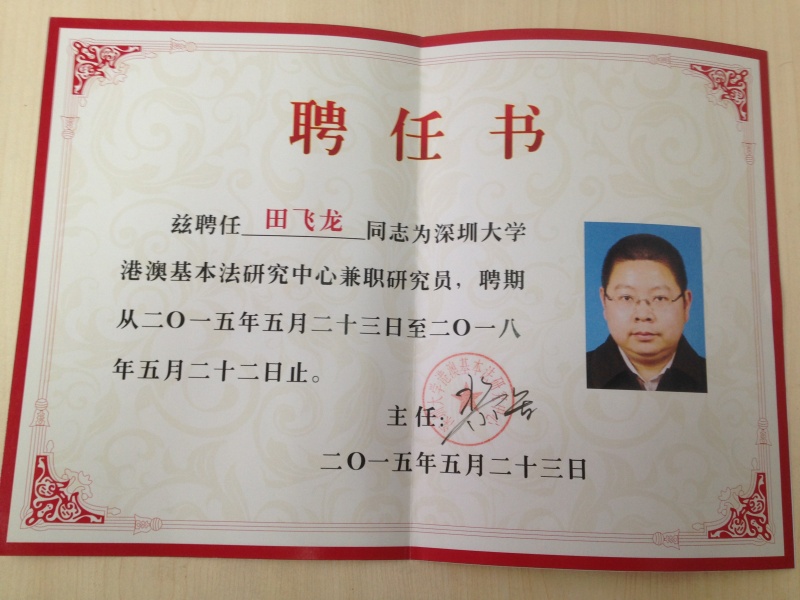 聘任书
兹聘任 田飞龙 同志为深圳大学
港澳基本法研究中心兼职研究员，聘期
从二〇一五年五月二十三日至二〇一八
年五月二十二日止。
主任：
二〇一五年五月二十三日